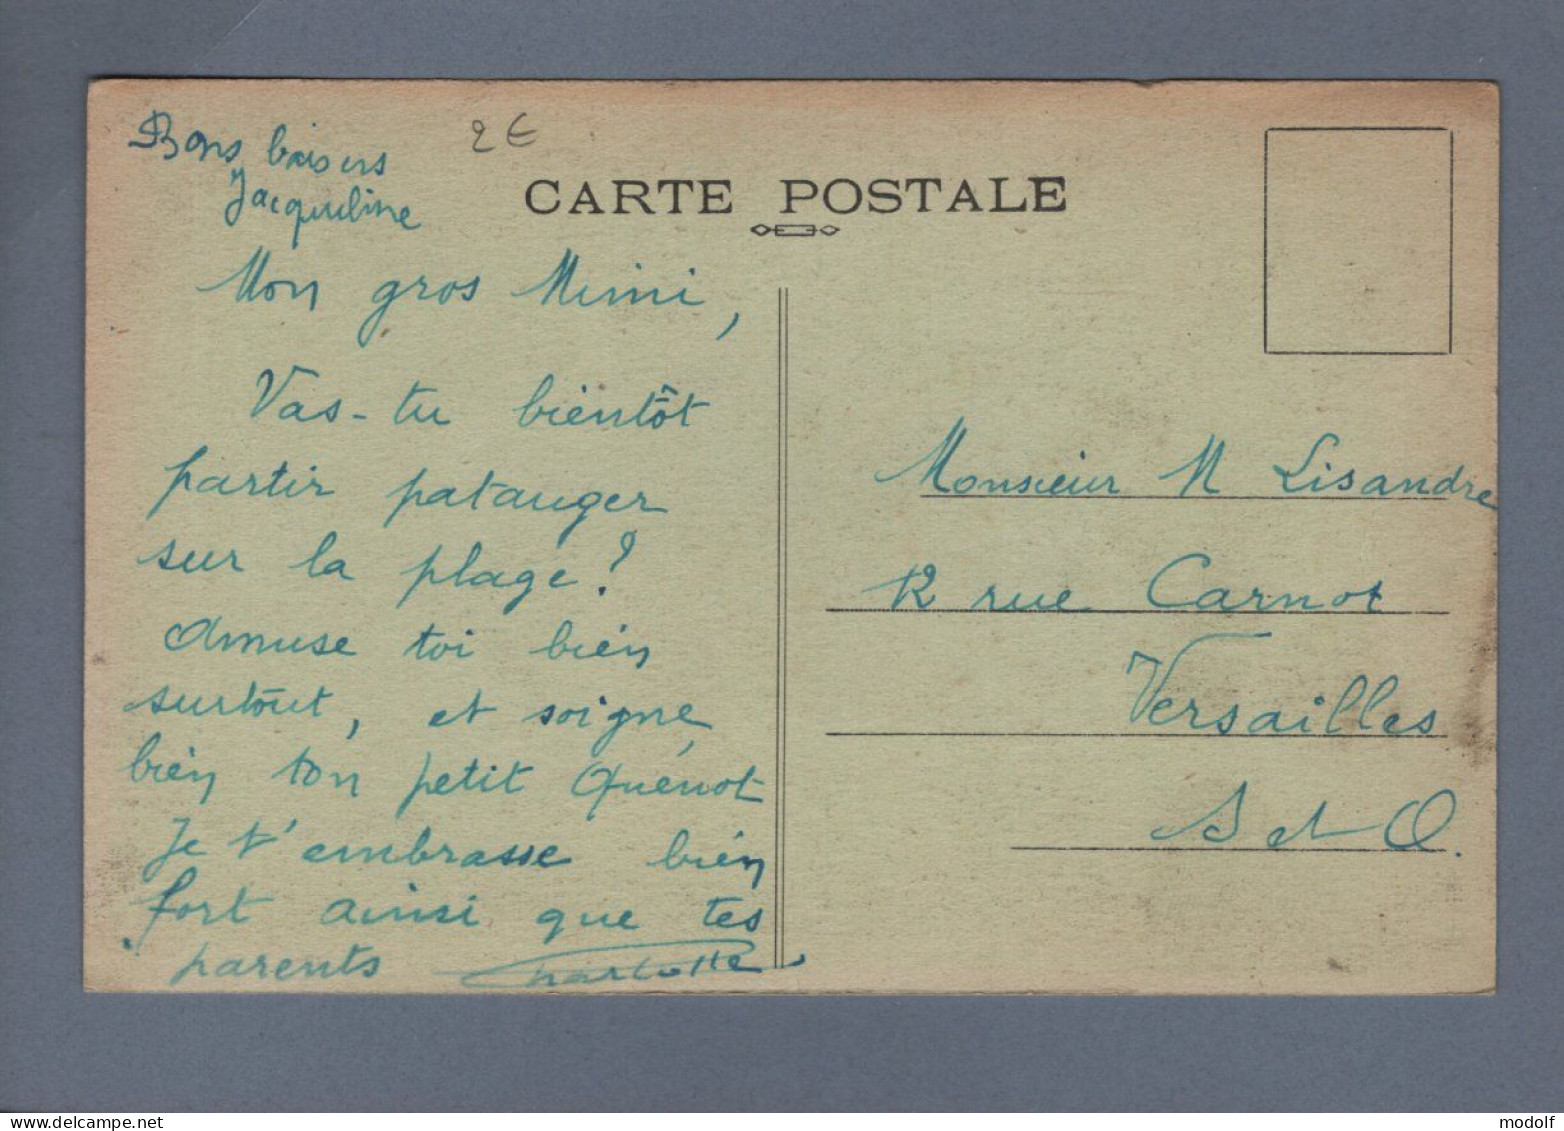 Bons baisers
Jacqueline
2€
CARTE POSTALE
Mon gros Mimi,
Vas-tu bientôt
partir patauger
sur la plage?
Amuse toi bien
surtout, et soigne
bien ton petit Quénot
Je t'embrasse bien
fort ainsi que tes
parents Charlotte
Monsieur M Lisandre
12 rue Carnot
Versailles
S et O.
www.delcampe.net
modolf